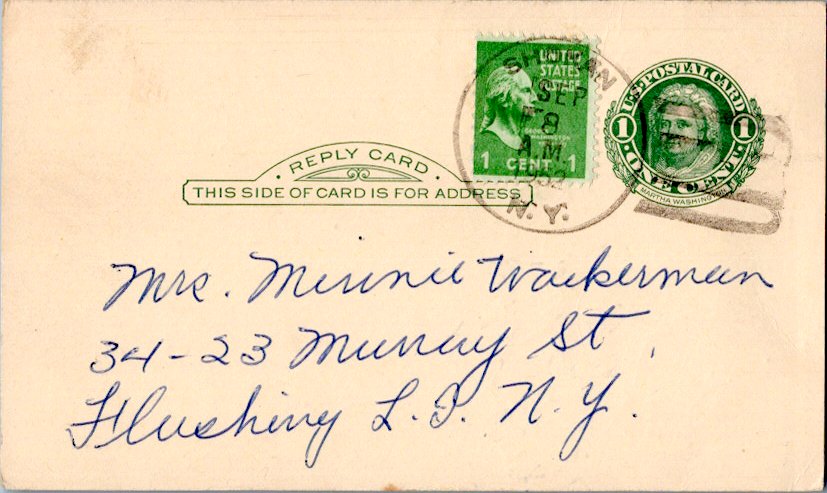 UNITED
STATES
POSTAGE
GEORGE
WASHINGTON
1 CENT 1
SHERMAN
SEP
8
A.M.
1952
N. Y.
U.S. POSTAL CARD
1 1
ONE CENT
MARTHA WASHINGTON
· REPLY CARD ·
THIS SIDE OF CARD IS FOR ADDRESS
Mrs. Minnie Wackerman
34-23 Murray St
Flushing L. I. N. Y.